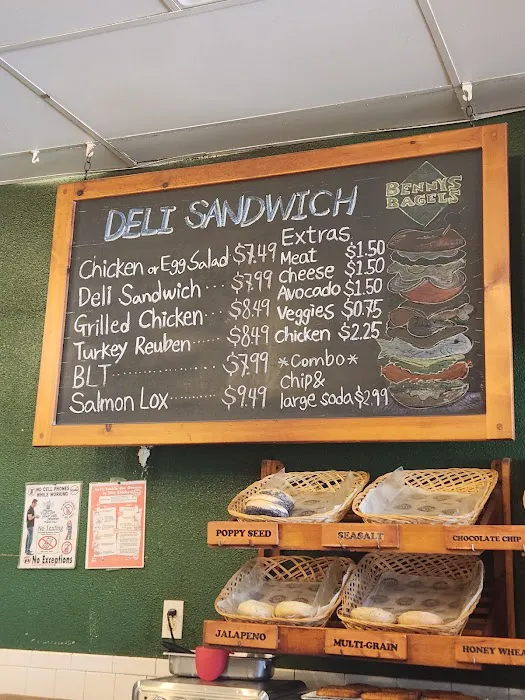 DELI SANDWICH
BENNYS
BAGELS
Chicken or Egg Salad $7.49
Deli Sandwich ... $7.99
Grilled Chicken $8.49
Turkey Reuben $8.49
BLT ........ $7.99
Salmon Lox ........ $9.49
Extras
Meat $1.50
Cheese $1.50
Avocado $1.50
Veggies $0.75
Chicken $2.25
*Combo*
Chip&
large soda $2.99
NO CELL PHONES
WHILE WORKING
No Texting
No Exceptions
POPPY SEED
SEASALT
CHOCOLATE CHIP
JALAPENO
MULTI-GRAIN
HONEY WHEA